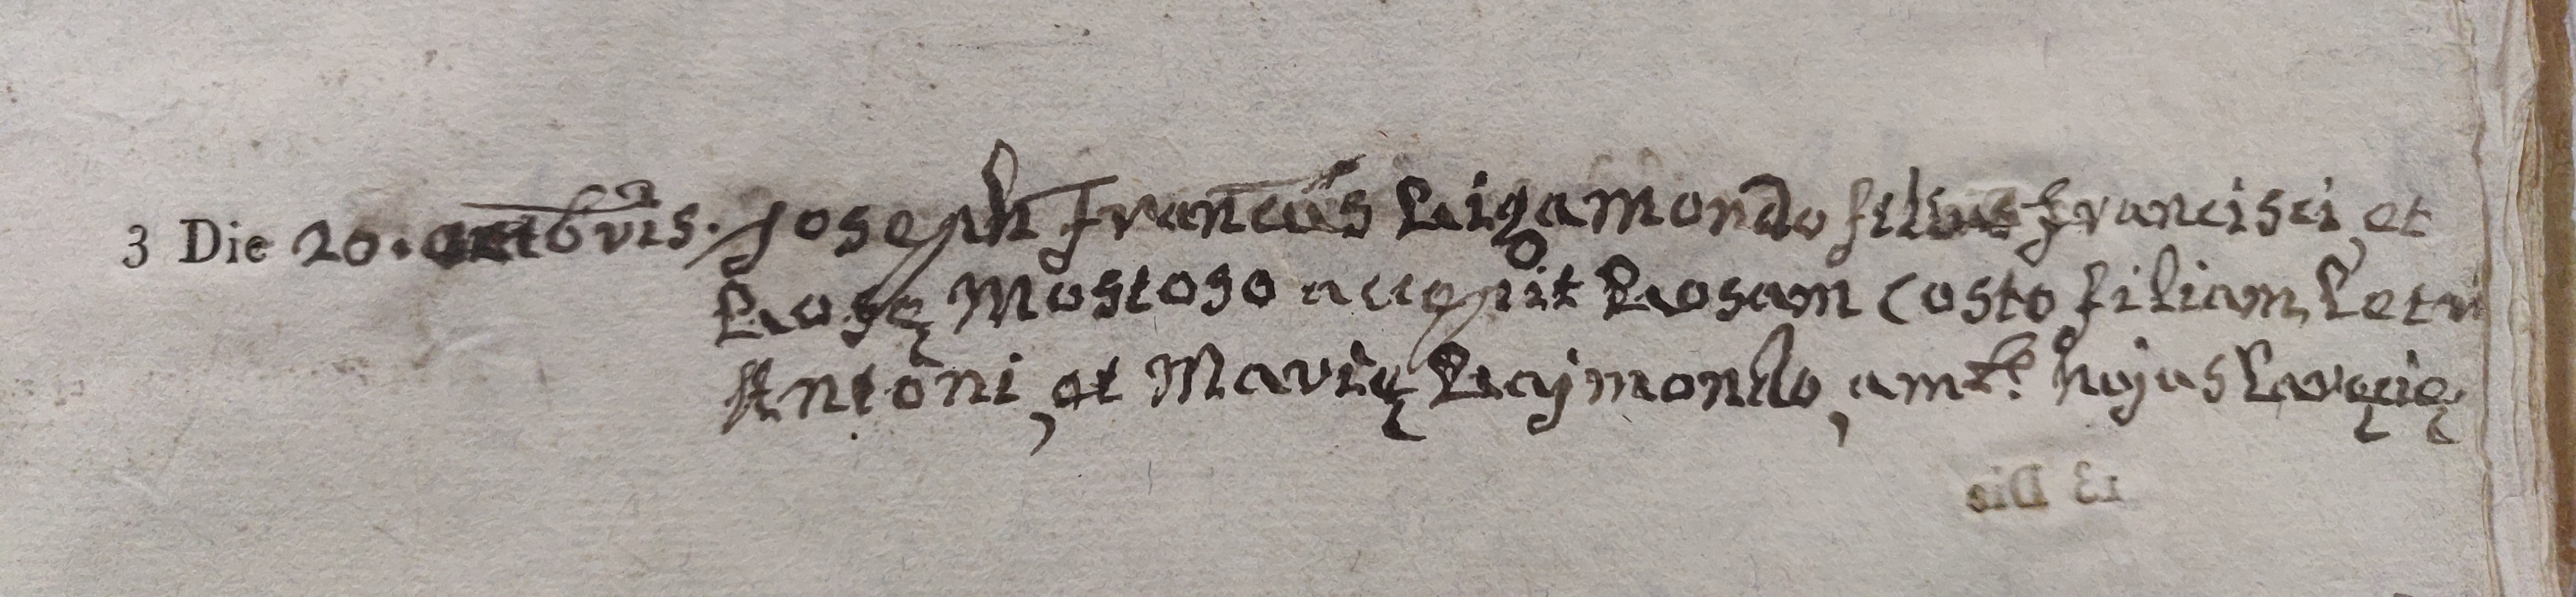 3 Die 20. octobris. Joseph Francus Rigamondo filius Francisci, et
Rosę Mostoso accepit Rosam Costo filiam Petri
Antoni, et Marię Rajmondo, ambo hujus Paręcię
13 Die